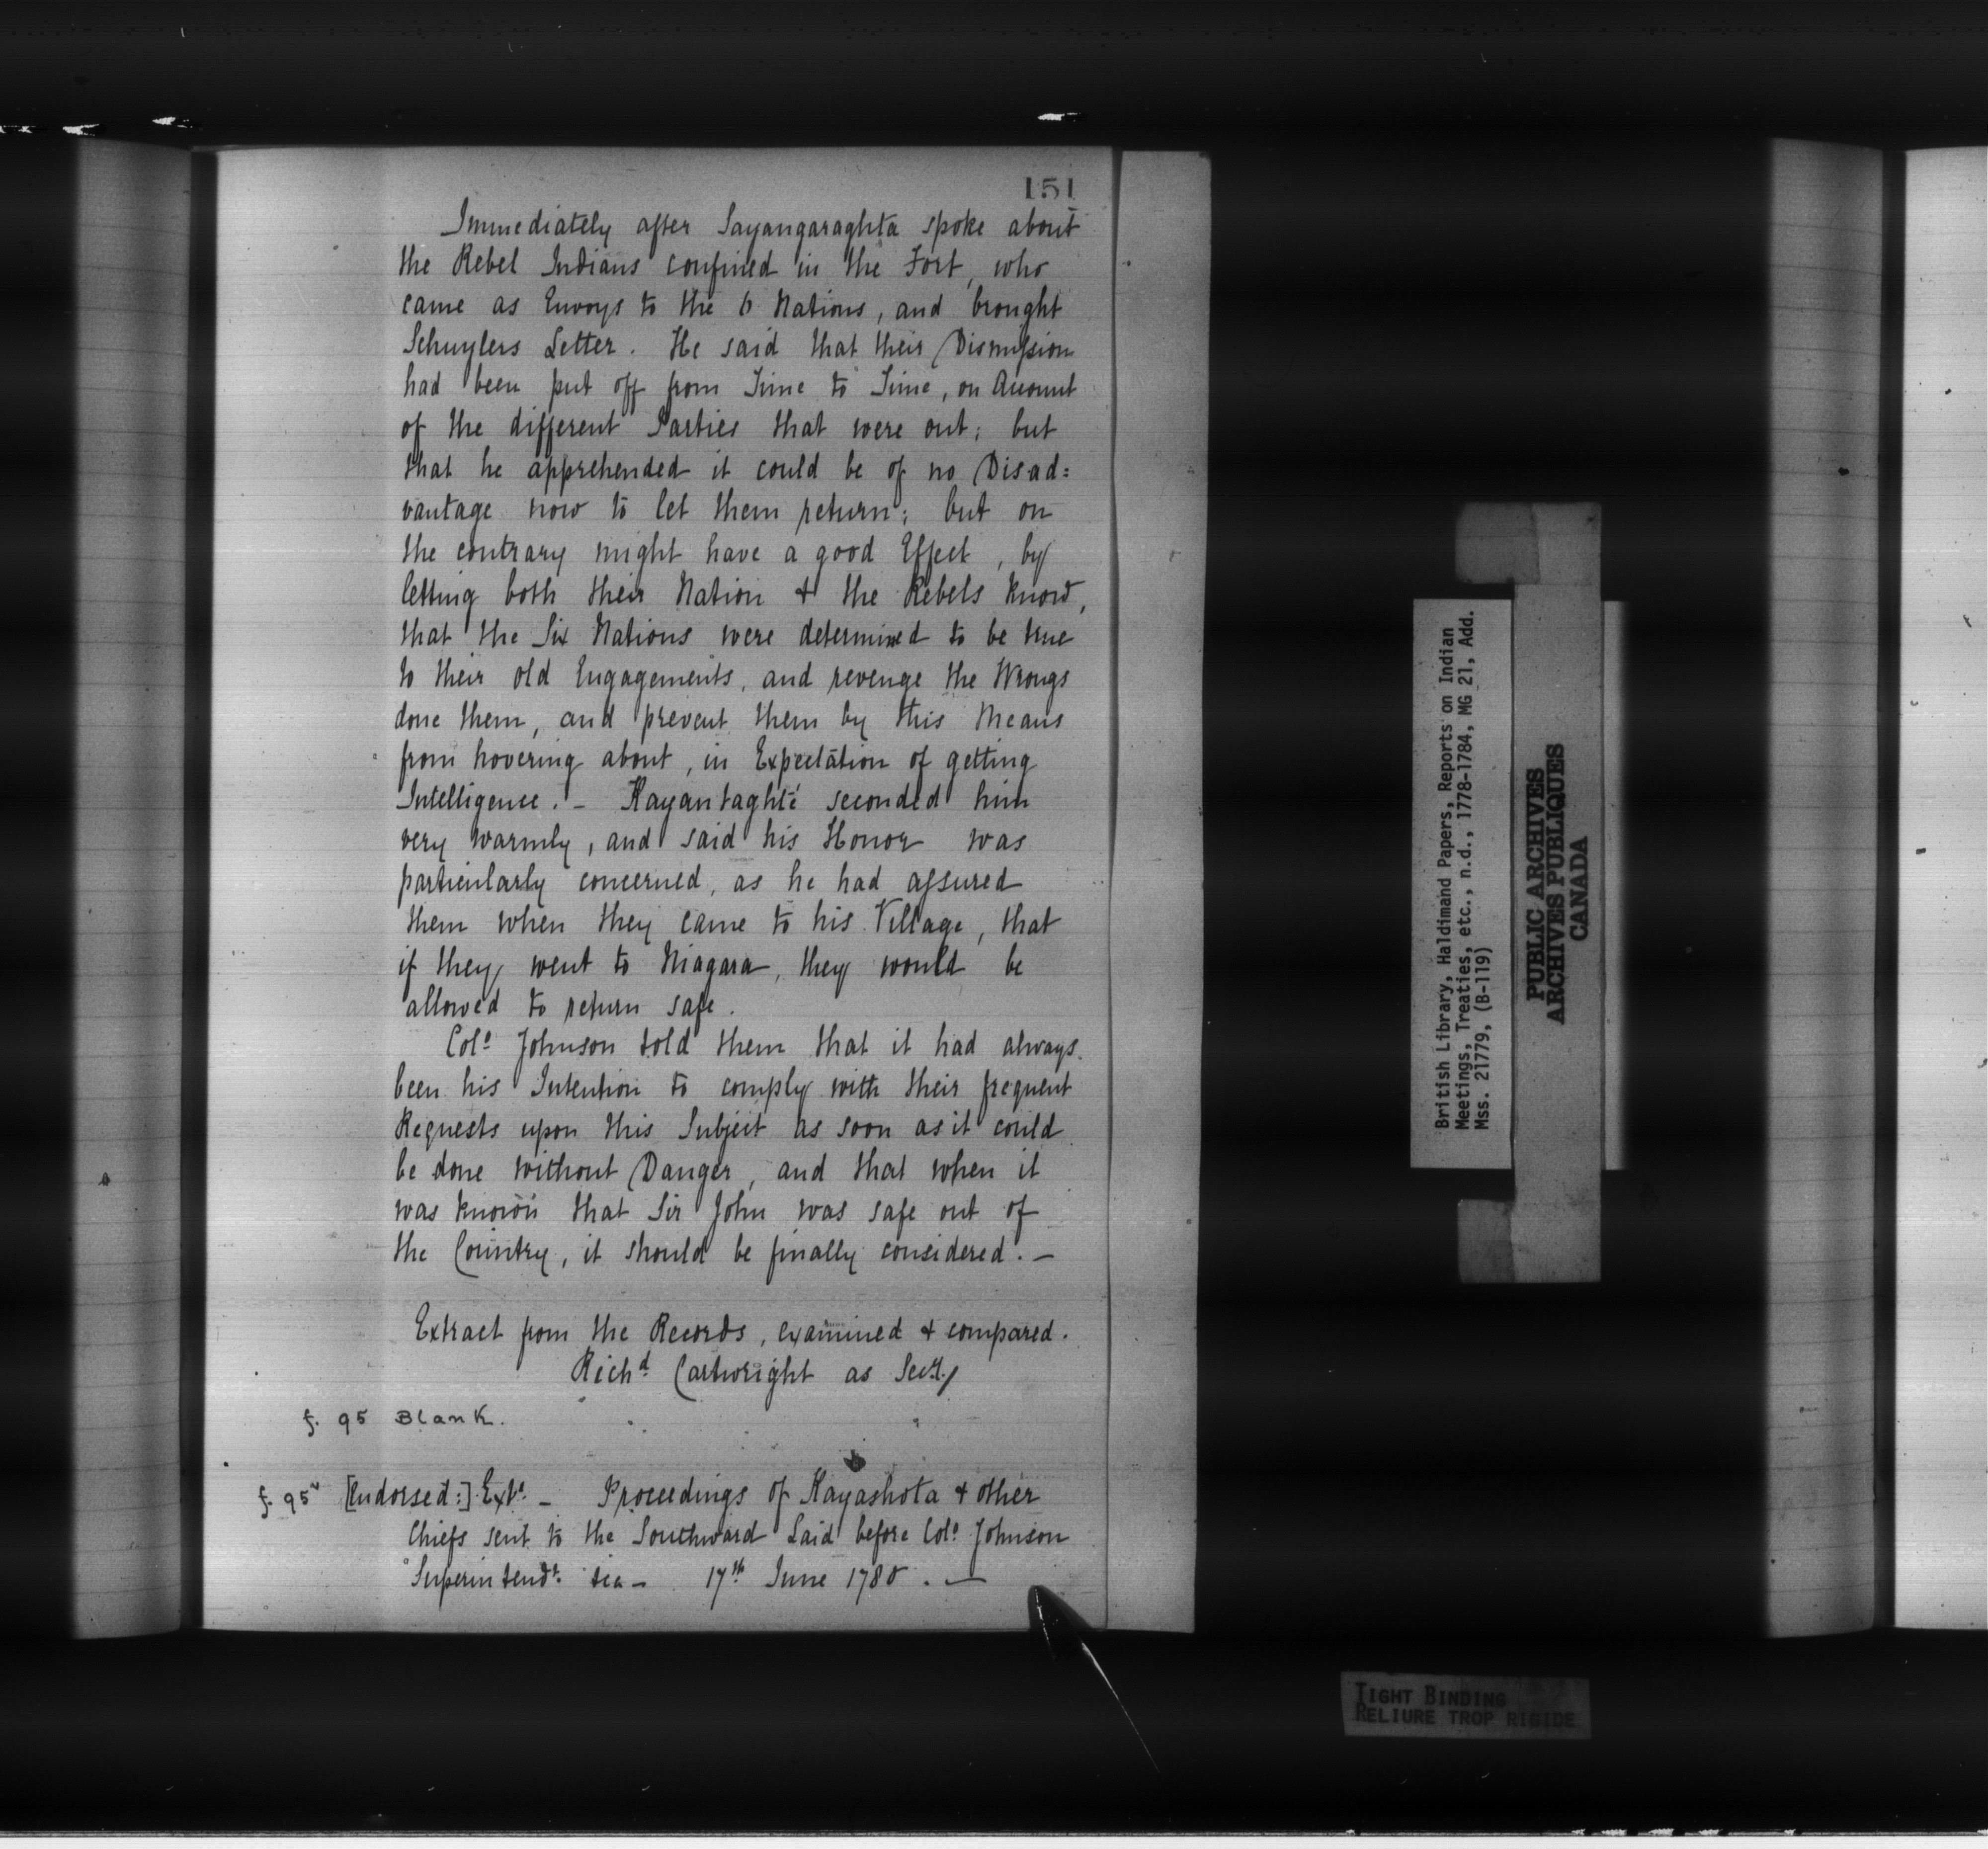 151
Immediately after Sayangaraghta spoke about
the Rebel Indians confined in the Fort, who
came as Envoys to the 6 Nations, and brought
Schuylers Letter. He said that their Dismission
had been put off from Time to Time, on Account
of the different Parties that were out; but
that he apprehended it could be of no Disad=
vantage now to let them return; but on
the contrary might have a good Effect, by
letting both their Nation & the Rebels know,
that the Six Nations were determined to be true
to their old Engagements, and revenge the Wrongs
done them, and prevent them by this Means
from hovering about, in Expectation of getting
Intelligence. - Kayantaghté seconded him
very warmly, and said his Honor was
particularly concerned, as he had assured
them when they came to his Village, that
if they went to Niagara, they would be
allowed to return safe.
Colo. Johnson told them that it had always
been his Intention to comply with their frequent
Requests upon this Subject as soon as it could
be done without Danger, and that when it
was known that Sir John was safe out of
the Country, it should be finally considered. -
Extract from the Records, examined & compared.
Richd Cartwright as Secy.
f. 95 Blank.
f. 95v [Endorsed:] Exts. - Proceedings of Kayashota & other
Chiefs sent to the Southward Laid before Colo. Johnson
Superintendt. &ca - 17th June 1780. -
British Library, Haldimand Papers, Reports on Indian
Meetings, Treaties, etc., n.d., 1778-1784, MG 21, Add.
Mss. 21779, (B-119)
PUBLIC ARCHIVES
ARCHIVES PUBLIQUES
CANADA
TIGHT BINDING
RELIURE TROP RIGIDE